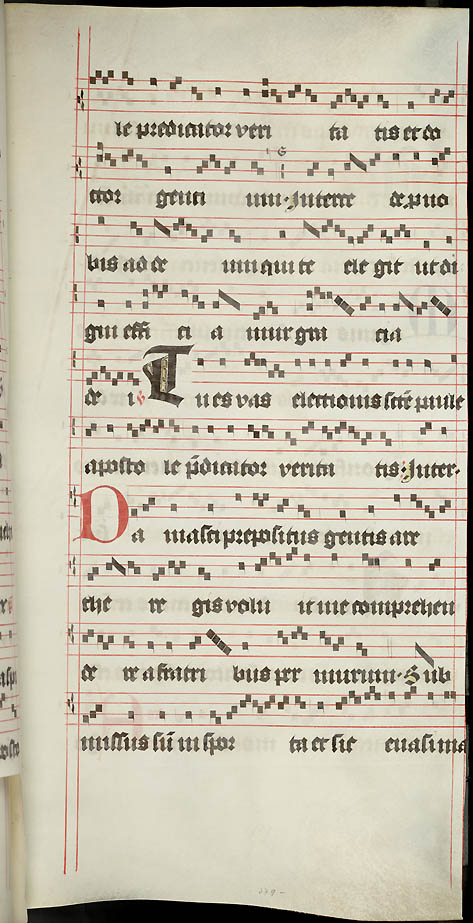 le predicator veri ta tis et do
ctor genti um· Interce de pro no
bis ad de um qui te ele git ut di
gni effi ci a mur gra cia
de i ℣ Tu es vas electionis scē paule
aposto le p̄dicator verita tis· Inter·
Da masci prepositus gentis are
the re gis volu it me comprehen
de re a fratri bus per murum· Sub
missus sū in spor ta et sic evasi ma